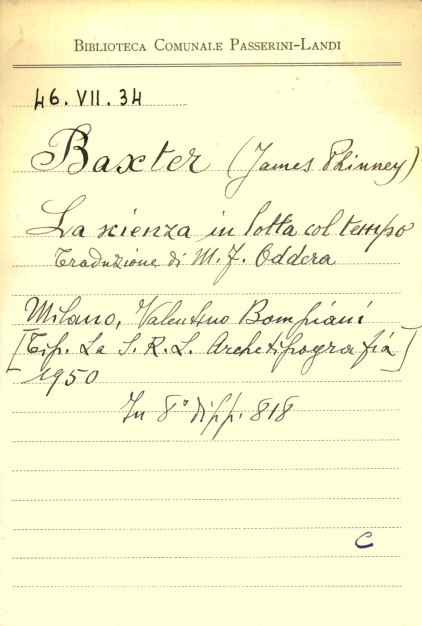 BIBLIOTECA COMUNALE PASSERINI-LANDI
46.VII.34
Baxter (James Phinney)
La scienza in lotta col tempo
Traduzione di M. J. Oddera
Milano, Valentino Bompiani
[Tip. La S. R. L. Archetipografia]
1950
In 8° di pp. 818
C